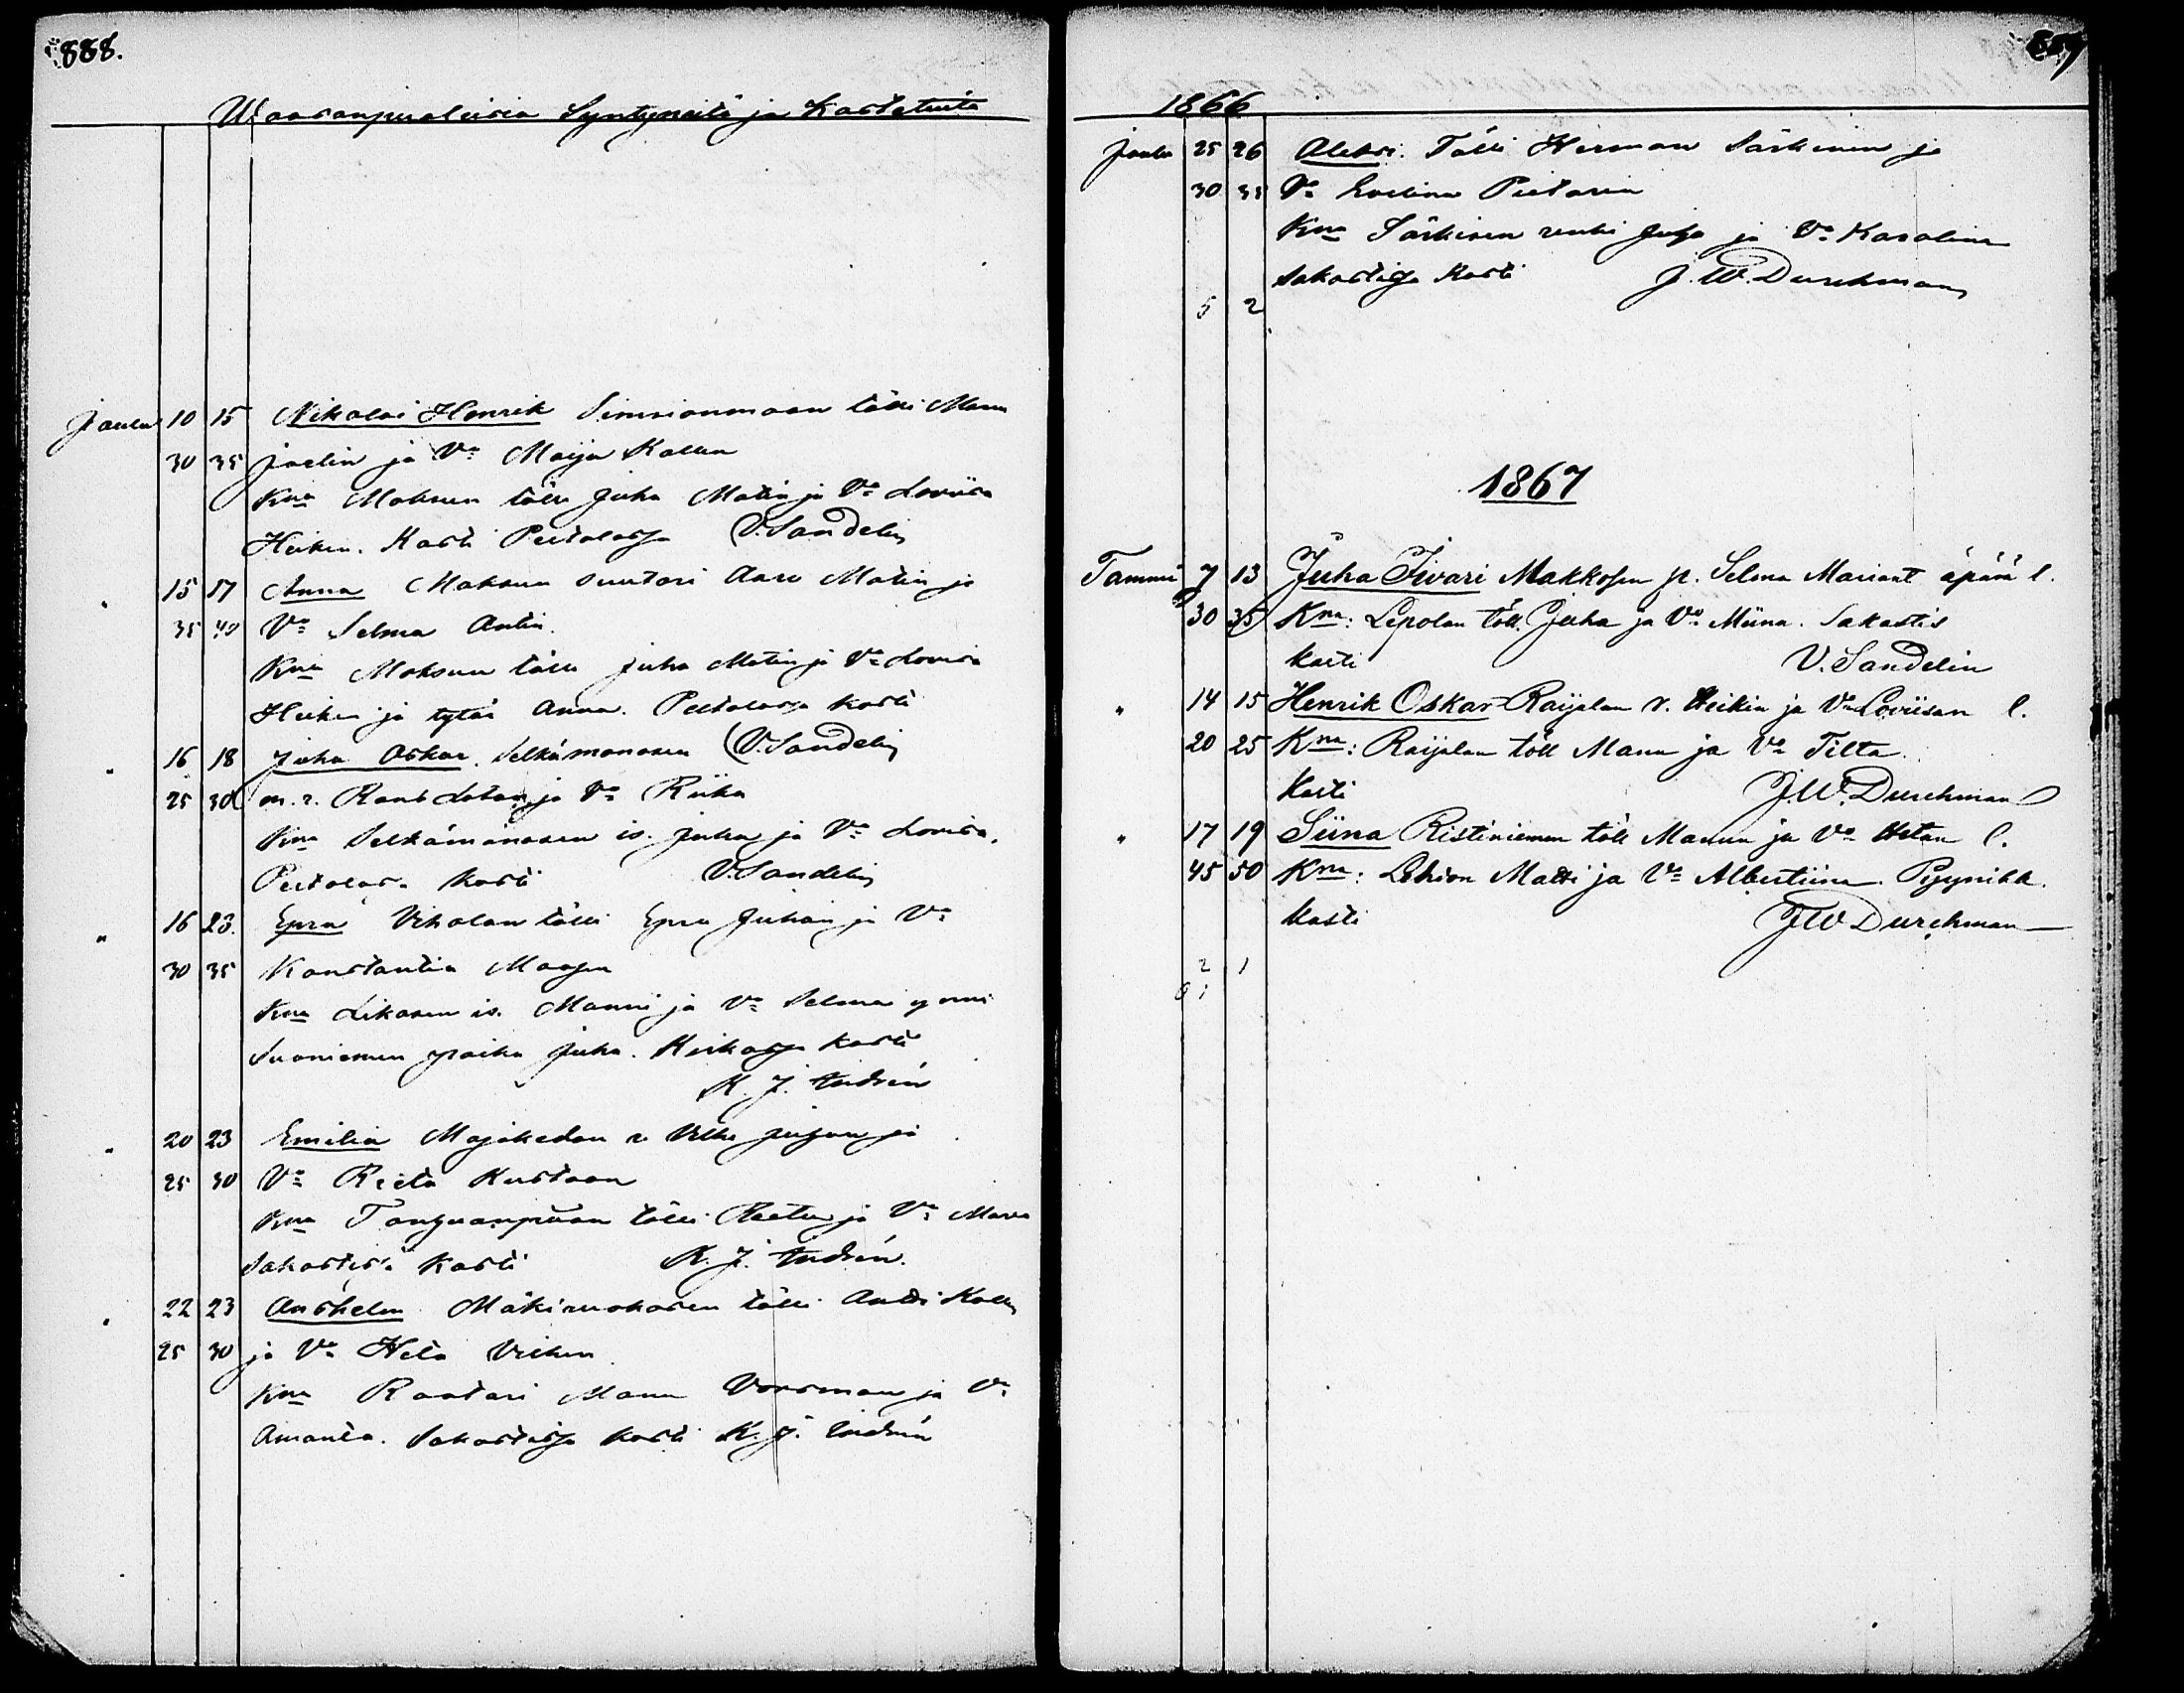 888.
Waaranpualeisia Syntyneitä ja Kastetuita
Joulu 10 15 Nikolai Henrik Simsionmaan tölli Manu
30 35 Joelin ja Vo Maija Kallen
Kna Moksuen tölli Juha Matin ja Vo Loviisa
Heiken. Kasti Peitolassa V. Sandelin
" 15 17 Anna Moksuen suutari Aaro Matin ja
35 40 Vo Selma Antin.
Kna Moksuen tölli Juha Matin ja Vo Lovisa
Heiken ja tytär Anna. Peitolassa kasti
" 16 18 Juha Oskar. Selkämanasen V. Sandelin
25 30 m. r. ja Vo Riika
Kna Selkämanasen is. Juha ja Vo Lovisa.
Peitolas. Kasti V. Sandelin
" 16 23. Epra Viholan tölli Epra Juhan ja Vo
30 35 Konstantia
Kna Likasen is. Manni ja Vo Selma ynni
Suoniemen poika Juha. Kirkossa kasti
K. J.
" 20 23 Emilia Majakedan r. Ville Jussan ja
25 30 Vo Reeta Kustaan
Kna tölli Reetu ja Vo Maria
Sakastissa kasti K. J.
" 22 23 Anshelm Mäkiruokosen tölli Antti Kallen
25 30 ja Vo Heta
Kna Rantari Manu Vorsman ja Vo
Amanta. Sakastissa kasti K. J.
1866
Joulu 25 26 Aleksi. Tölli Herman Särkinen ja
30 35 Vo Evelina Pietarin
Kna Särkisen renki Juha ja Vo Karolina
Sakastissa Kasti J. W. Durchman
5 2
1867
Tammi 7 13 Juha Iivari Makkosen p. Selma Mariant äpärä l.
30 35 Kna: Lepolan töll. Juha ja Vo Miina. Sakastis
kasti V. Sandelin
" 14 15 Henrik Oskar Raijalan r. Heikin ja Vo Loviisan l.
20 25 Kna: Raijalan töll Manu ja Vo Tilta.
Kasti J. W. Durchman
" 17 19 Siina Ristiniemen töll Manun ja Vo Hetan l.
45 50 Kna: Lehion Matti ja Vo Albertiina. Pyynikk.
Kasti J W Durchman
2 1